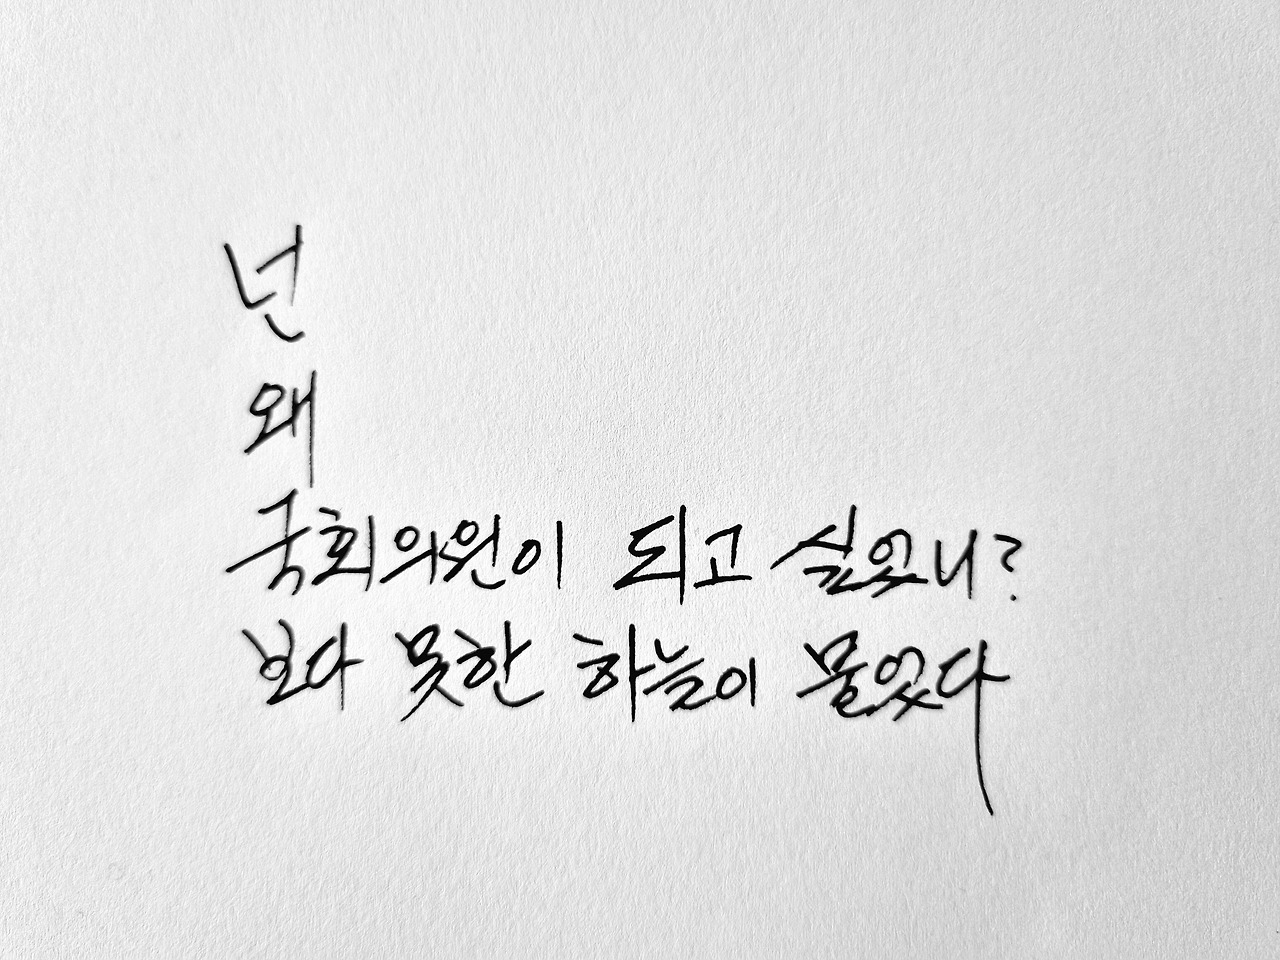 넌
왜
국회의원이 되고 싶었니?
보다 못한 하늘이 물었다